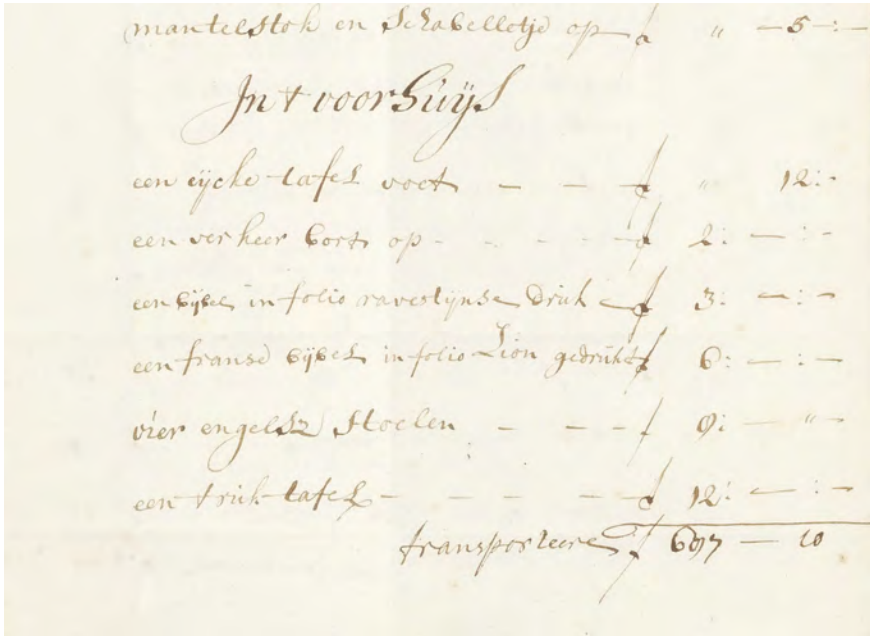 mantelstok en schabelletje op — ƒ " — 5 - : —
In t voorhuijs
een eijcke tafel voet — — — ƒ " 12 : -
een verkeer bort op - - - - - ƒ 2 : — : -
een bijbel in folio ravestijnse druk — ƒ 3 : — : —
een franse bijbel in folio Lion gedrukt ƒ 6 : — : —
vier engelse stoelen — — — ƒ 9 : — "
een truk tafel - - - - - ƒ 12 : — : —
transporteere ƒ 697 — 10